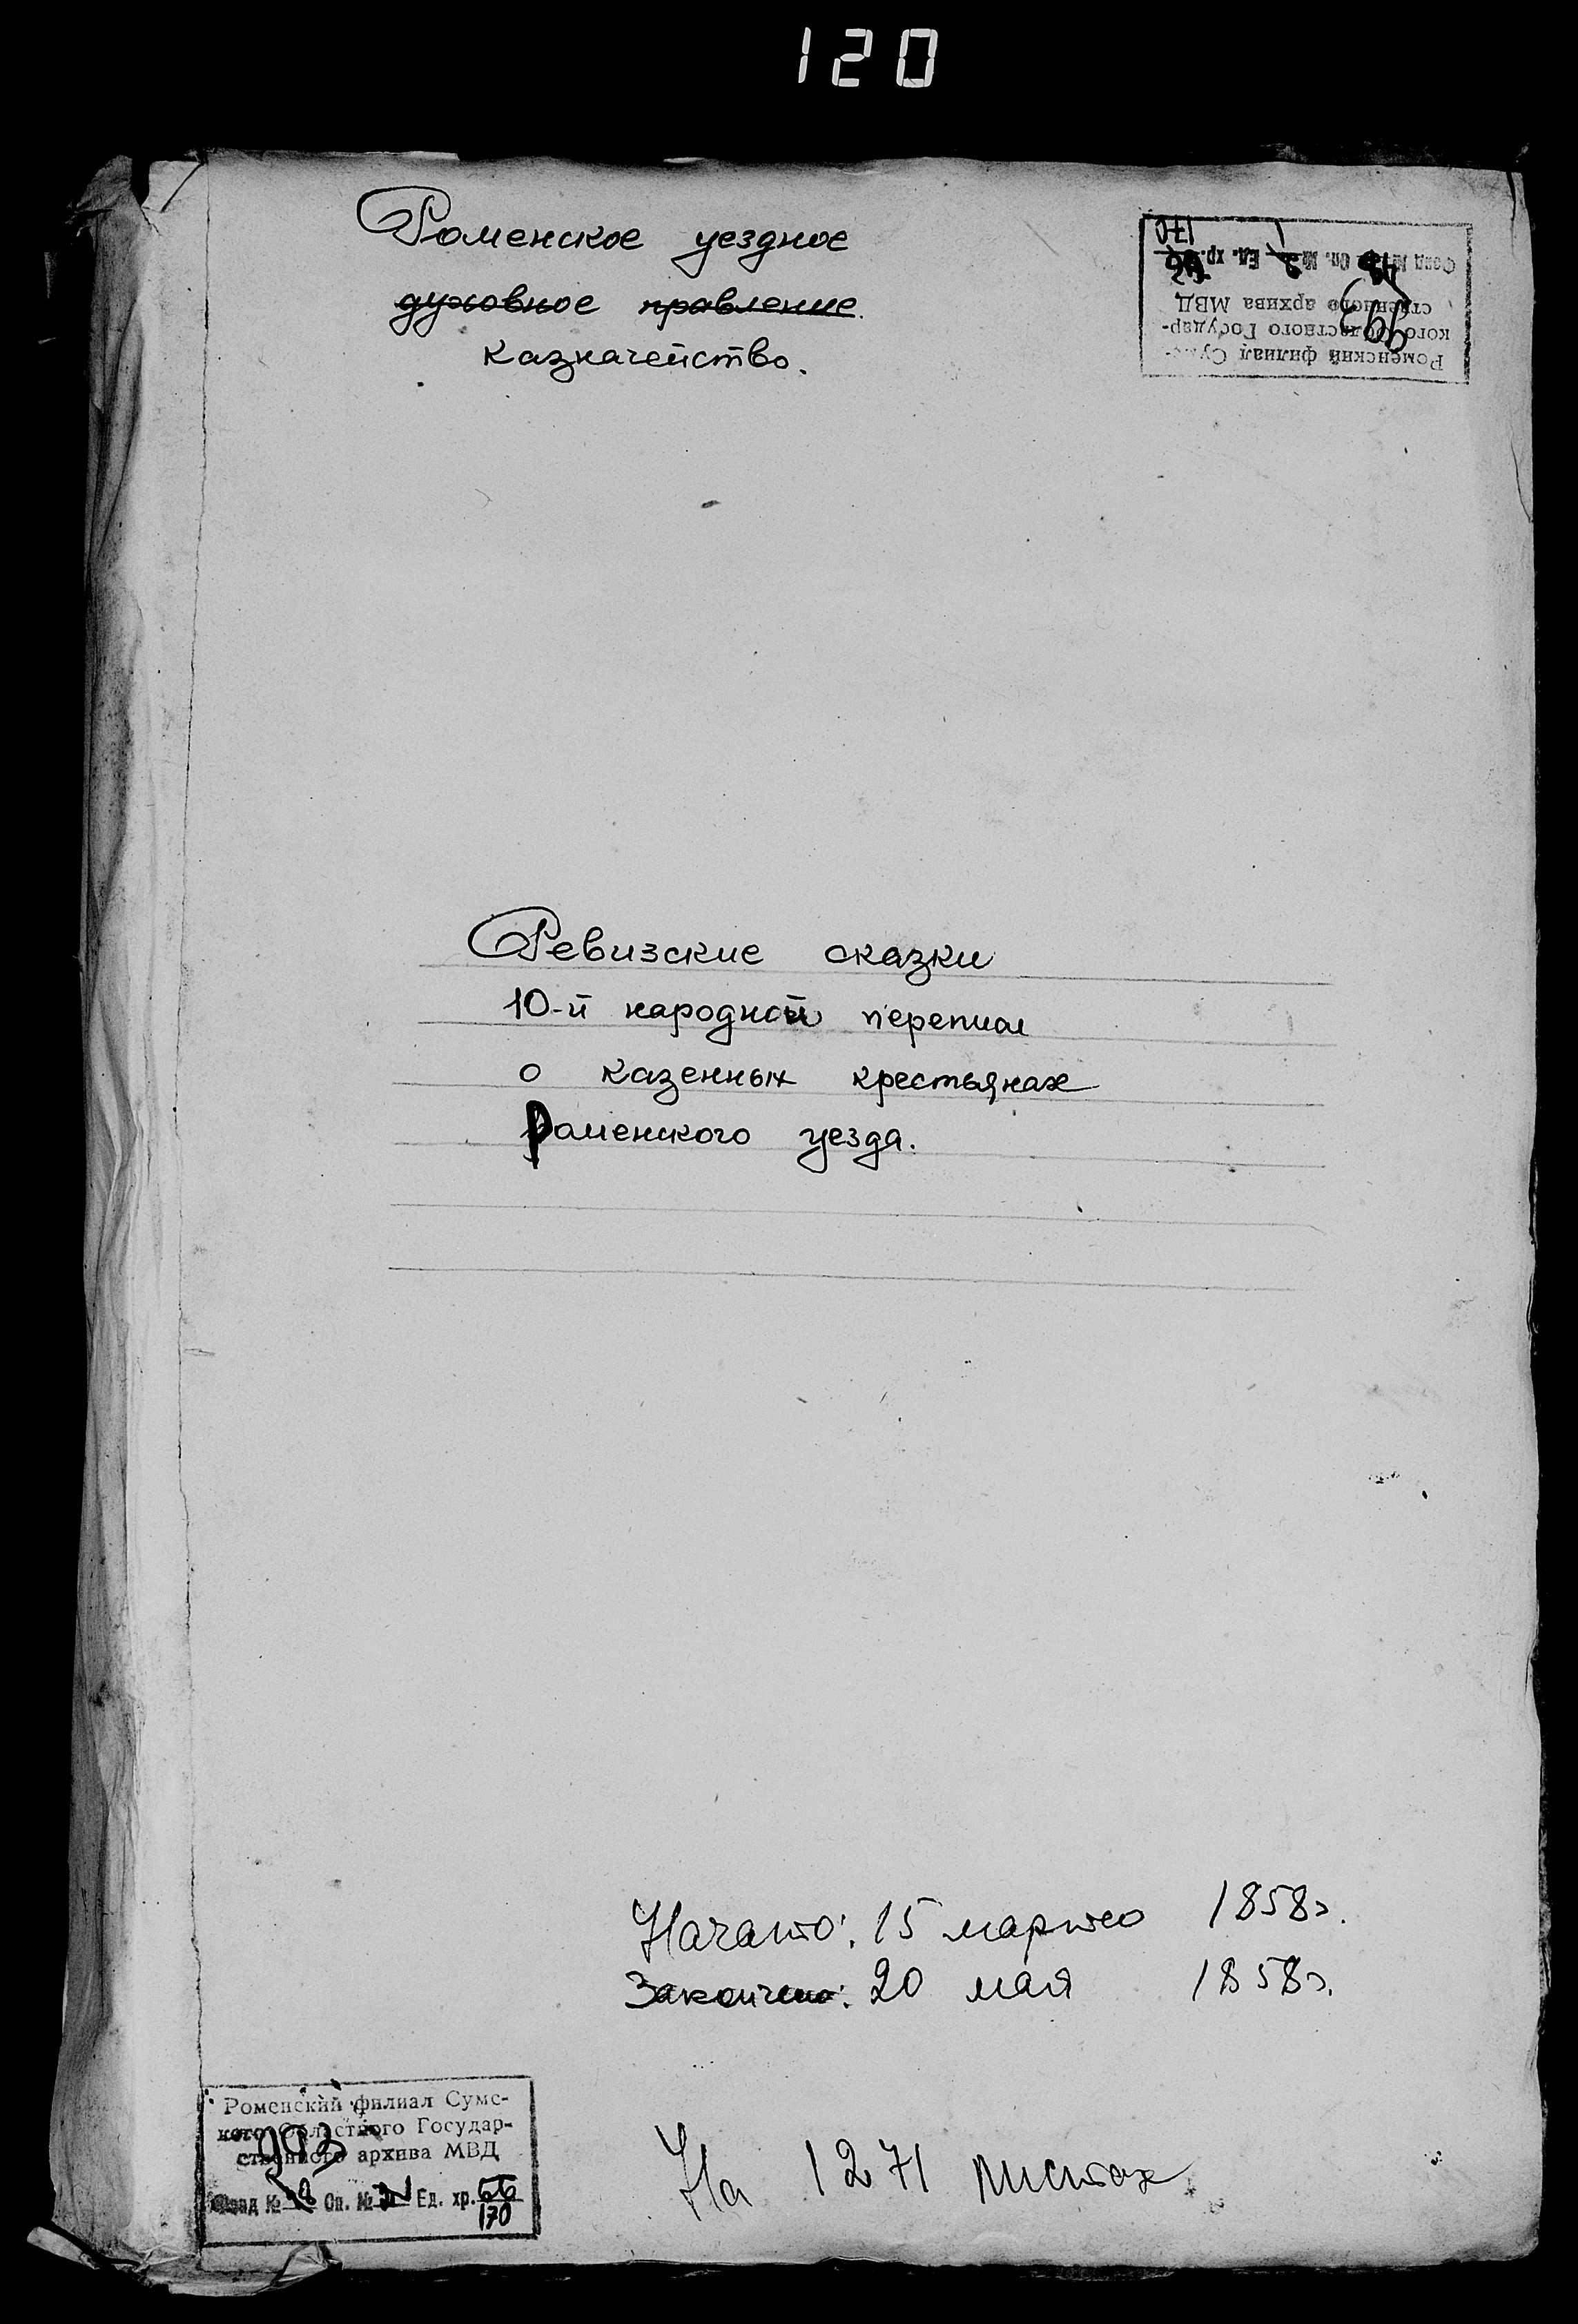 120
Роменское уездное
духовное правление.
казначейство.
Роменский филиал Сумс-
кого Областного Государ-
ственного архива МВД
993
Фонд № Оп. № 1 Ед. хр.
170
Ревизские сказки
10-й народной переписи
о казенных крестьянах
Роменского уезда.
Начато: 15 марта 1858г.
Закончено: 20 мая 1858г.
На 1271 листах
Роменский филиал Сумс-
кого Областного Государ-
ственного архива МВД
993
Фонд № Оп. № Ед. хр. 56
170